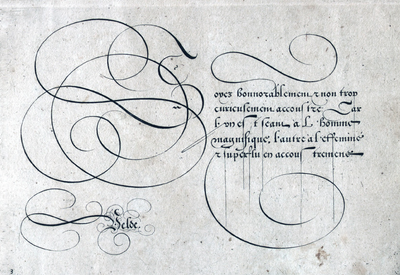 Soyez honnorablement & non trop
curieusement accoustré. Car
l'vn est seant à l'homme
magnifique, l'autre à l'effeminé
& superflu en accoustremens
Velde.